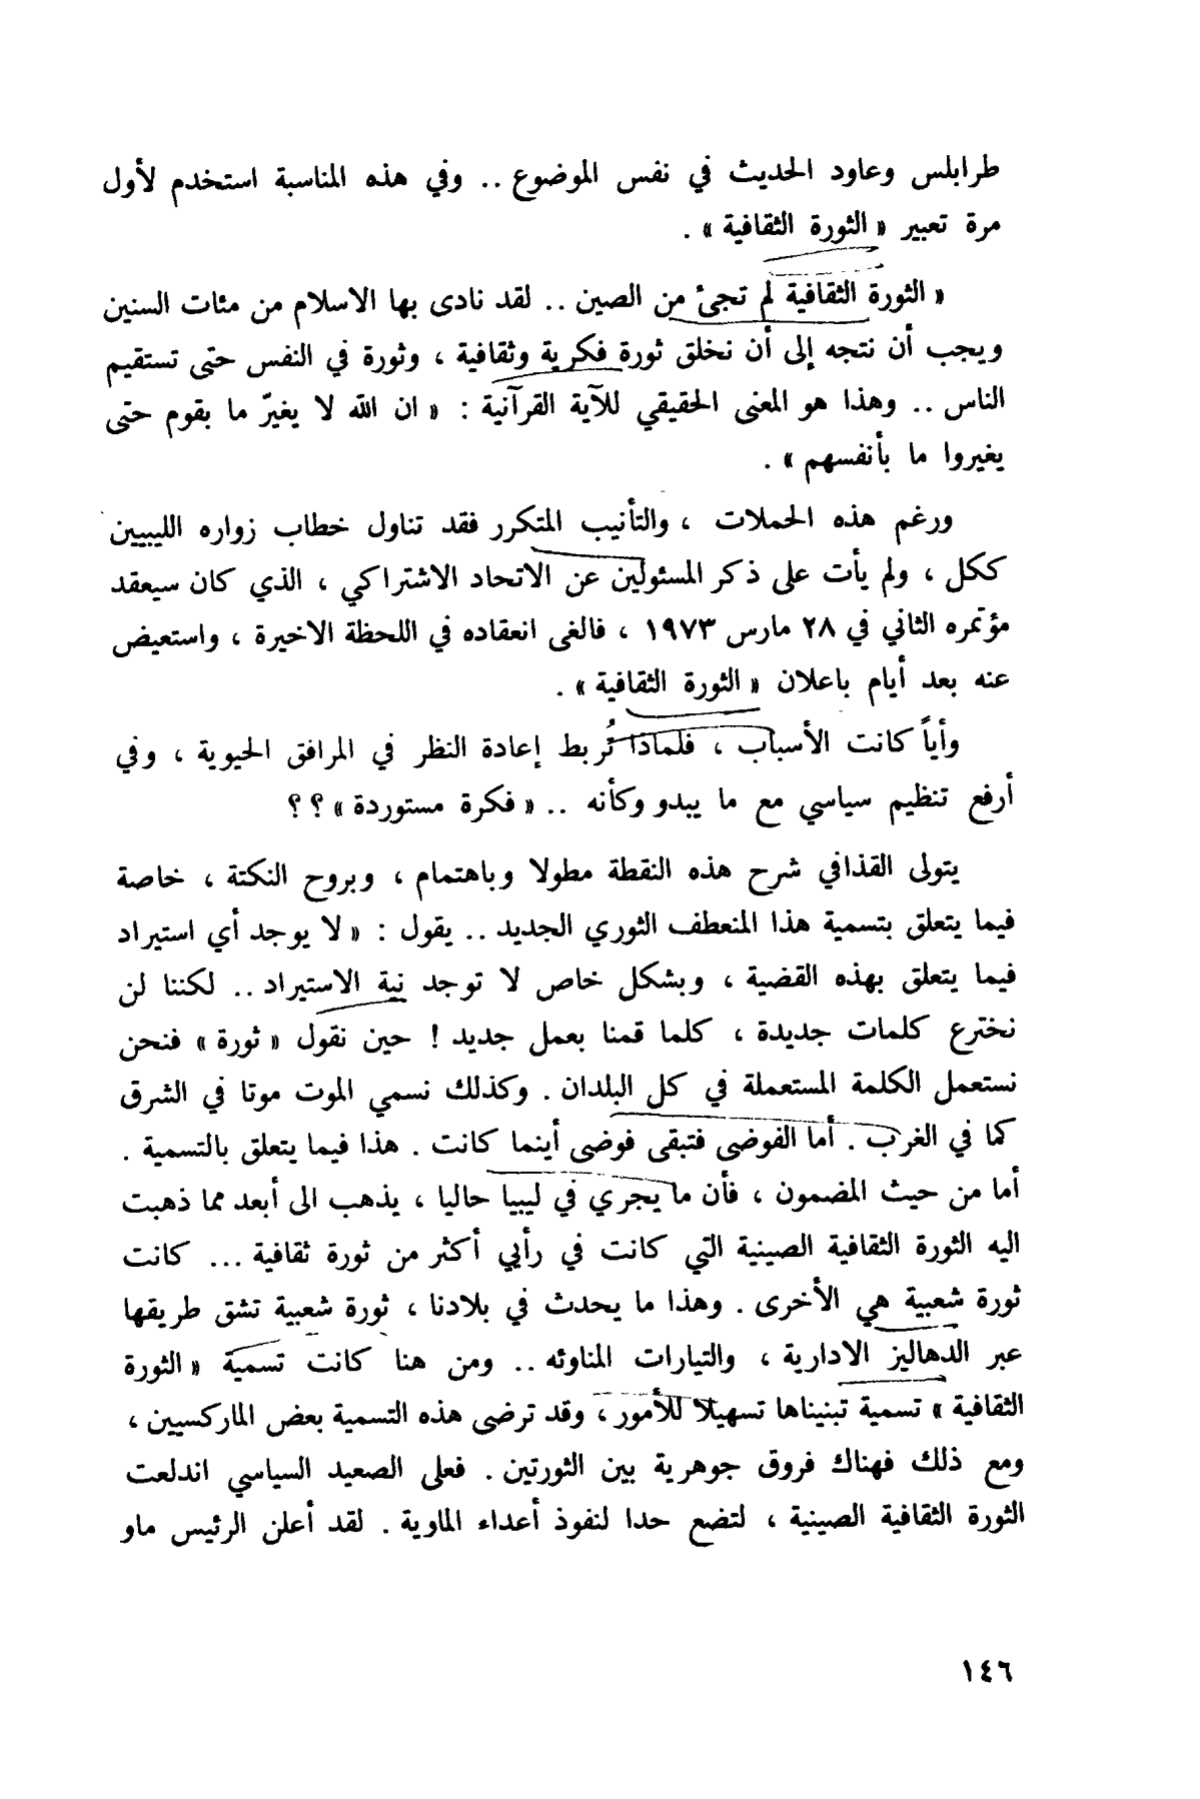 طرابلس وعاود الحديث في نفس الموضوع .. وفي هذه المناسبة استخدم لأول
مرة تعبير « الثورة الثقافية » .
« الثورة الثقافية لم تجئ من الصين .. لقد نادى بها الاسلام من مئات السنين
ويجب أن نتجه إلى أن نخلق ثورة فكرية وثقافية ، وثورة في النفس حتى تستقيم
الناس .. وهذا هو المعنى الحقيقي للآية القرآنية : « ان الله لا يغيرّ ما بقوم حتى
يغيروا ما بأنفسهم » .
ورغم هذه الحملات ، والتأنيب المتكرر فقد تناول خطاب زواره الليبيين
ككل ، ولم يأت على ذكر المسئولين عن الاتحاد الاشتراكي ، الذي كان سيعقد
مؤتمره الثاني في ٢٨ مارس ١٩٧٣ ، فالغى انعقاده في اللحظة الاخيرة ، واستعيض
عنه بعد أيام باعلان « الثورة الثقافية » .
وأياً كانت الأسباب ، فلماذا تُربط إعادة النظر في المرافق الحيوية ، وفي
أرفع تنظيم سياسي مع ما يبدو وكأنه .. « فكرة مستوردة » ؟ ؟
يتولى القذافي شرح هذه النقطة مطولا وباهتمام ، وبروح النكتة ، خاصة
فيما يتعلق بتسمية هذا المنعطف الثوري الجديد .. يقول : « لا يوجد أي استيراد
فيما يتعلق بهذه القضية ، وبشكل خاص لا توجد نية الاستيراد .. لكننا لن
نخترع كلمات جديدة ، كلما قمنا بعمل جديد ! حين نقول « ثورة » فنحن
نستعمل الكلمة المستعملة في كل البلدان . وكذلك نسمي الموت موتا في الشرق
كما في الغرب . أما الفوضى فتبقى فوضى أينما كانت . هذا فيما يتعلق بالتسمية .
أما من حيث المضمون ، فأن ما يجري في ليبيا حاليا ، يذهب الى أبعد مما ذهبت
اليه الثورة الثقافية الصينية التي كانت في رأيي أكثر من ثورة ثقافية ... كانت
ثورة شعبية هي الأخرى . وهذا ما يحدث في بلادنا ، ثورة شعبية تشق طريقها
عبر الدهاليز الادارية ، والتيارات المناوئه .. ومن هنا كانت تسمية « الثورة
الثقافية » تسمية تبنيناها تسهيلا للأمور ، وقد ترضى هذه التسمية بعض الماركسيين ،
ومع ذلك فهناك فروق جوهرية بين الثورتين . فعلى الصعيد السياسي اندلعت
الثورة الثقافية الصينية ، لتضع حدا لنفوذ أعداء الماوية . لقد أعلن الرئيس ماو
١٤٦